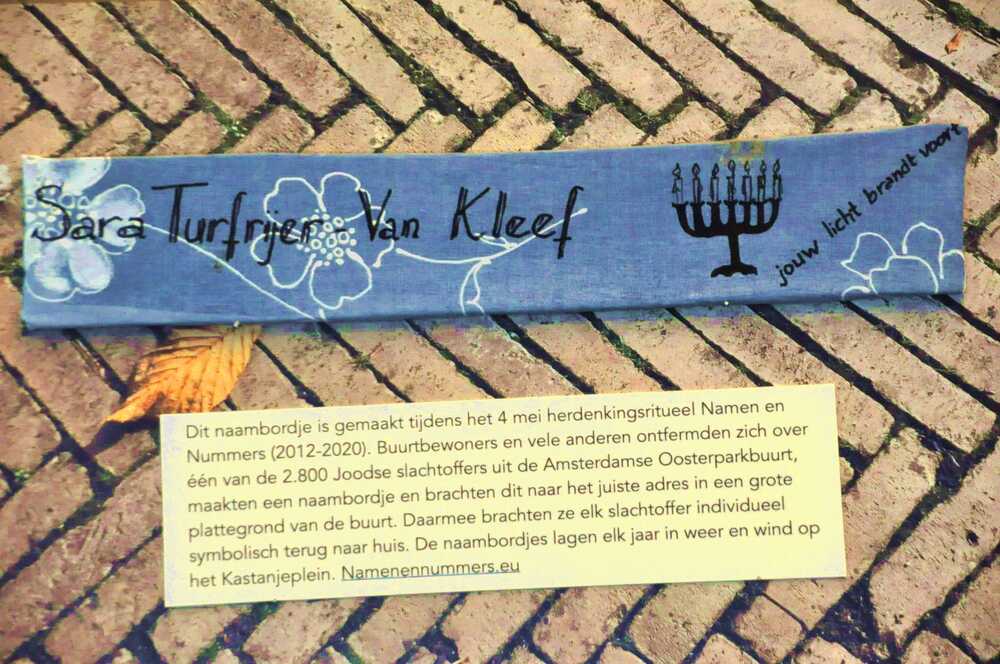 Sara Turfrijer - Van Kleef
jouw licht brandt voort
Dit naambordje is gemaakt tijdens het 4 mei herdenkingsritueel Namen en
Nummers (2012-2020). Buurtbewoners en vele anderen ontfermden zich over
één van de 2.800 Joodse slachtoffers uit de Amsterdamse Oosterparkbuurt,
maakten een naambordje en brachten dit naar het juiste adres in een grote
plattegrond van de buurt. Daarmee brachten ze elk slachtoffer individueel
symbolisch terug naar huis. De naambordjes lagen elk jaar in weer en wind op
het Kastanjeplein. Namenennummers.eu